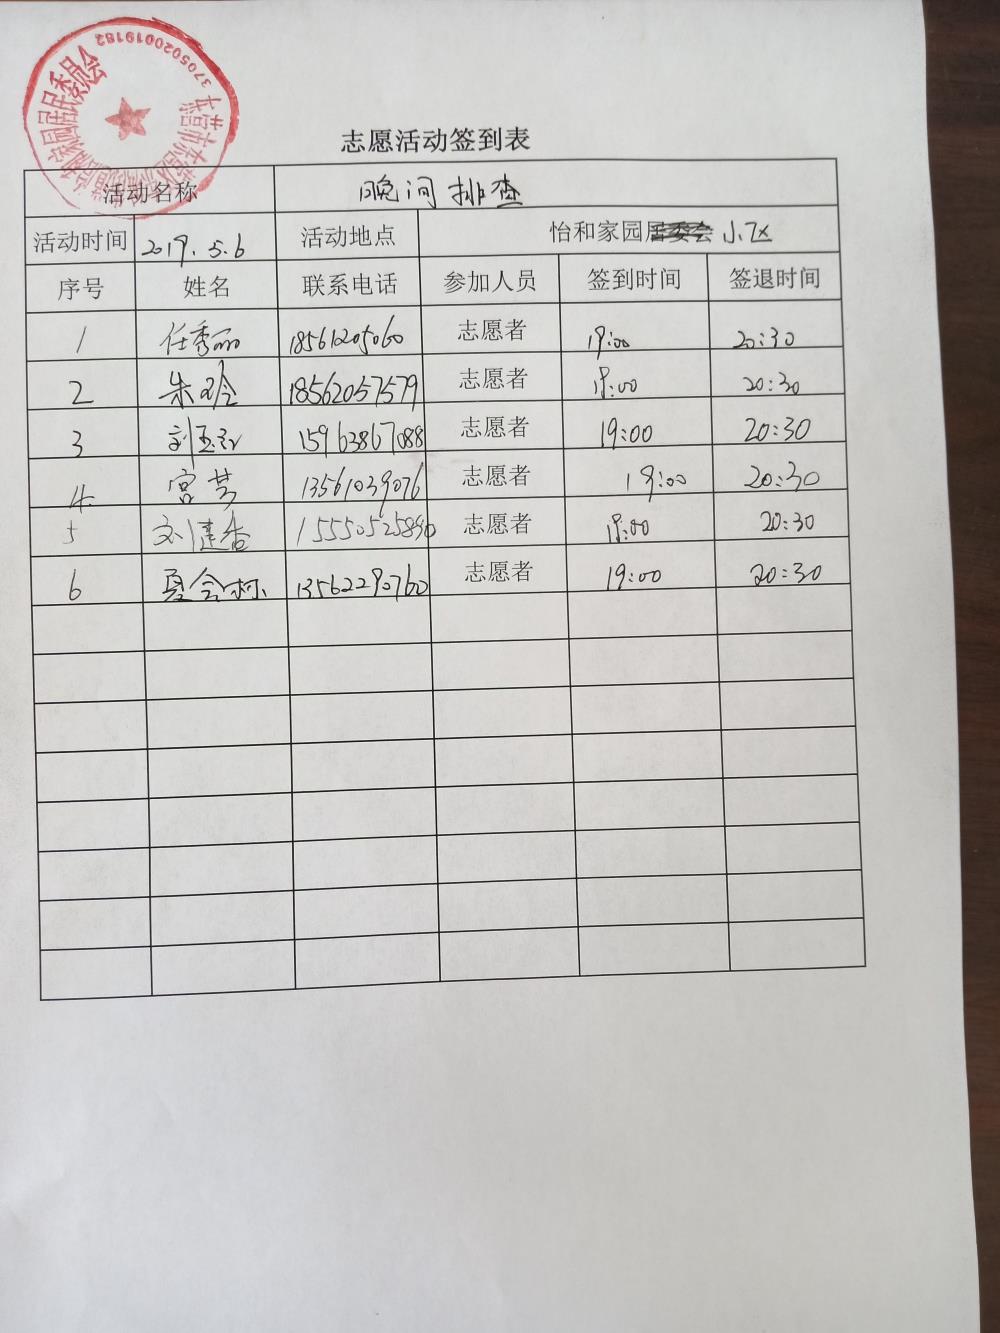 3705020019182
志愿活动签到表
活动名称 晚间排查
活动时间 2019.5.6 活动地点 怡和家园居委会 小区
序号 姓名 联系电话 参加人员 签到时间 签退时间
1 任秀丽 18561205060 志愿者 19:00 20:30
2 朱玲 18562057579 志愿者 19:00 20:30
3 刘玉 15963867088 志愿者 19:00 20:30
4 宫芳 13561039076 志愿者 19:00 20:30
5 刘建香 15550525890 志愿者 19:00 20:30
6 夏会 13562290760 志愿者 19:00 20:30